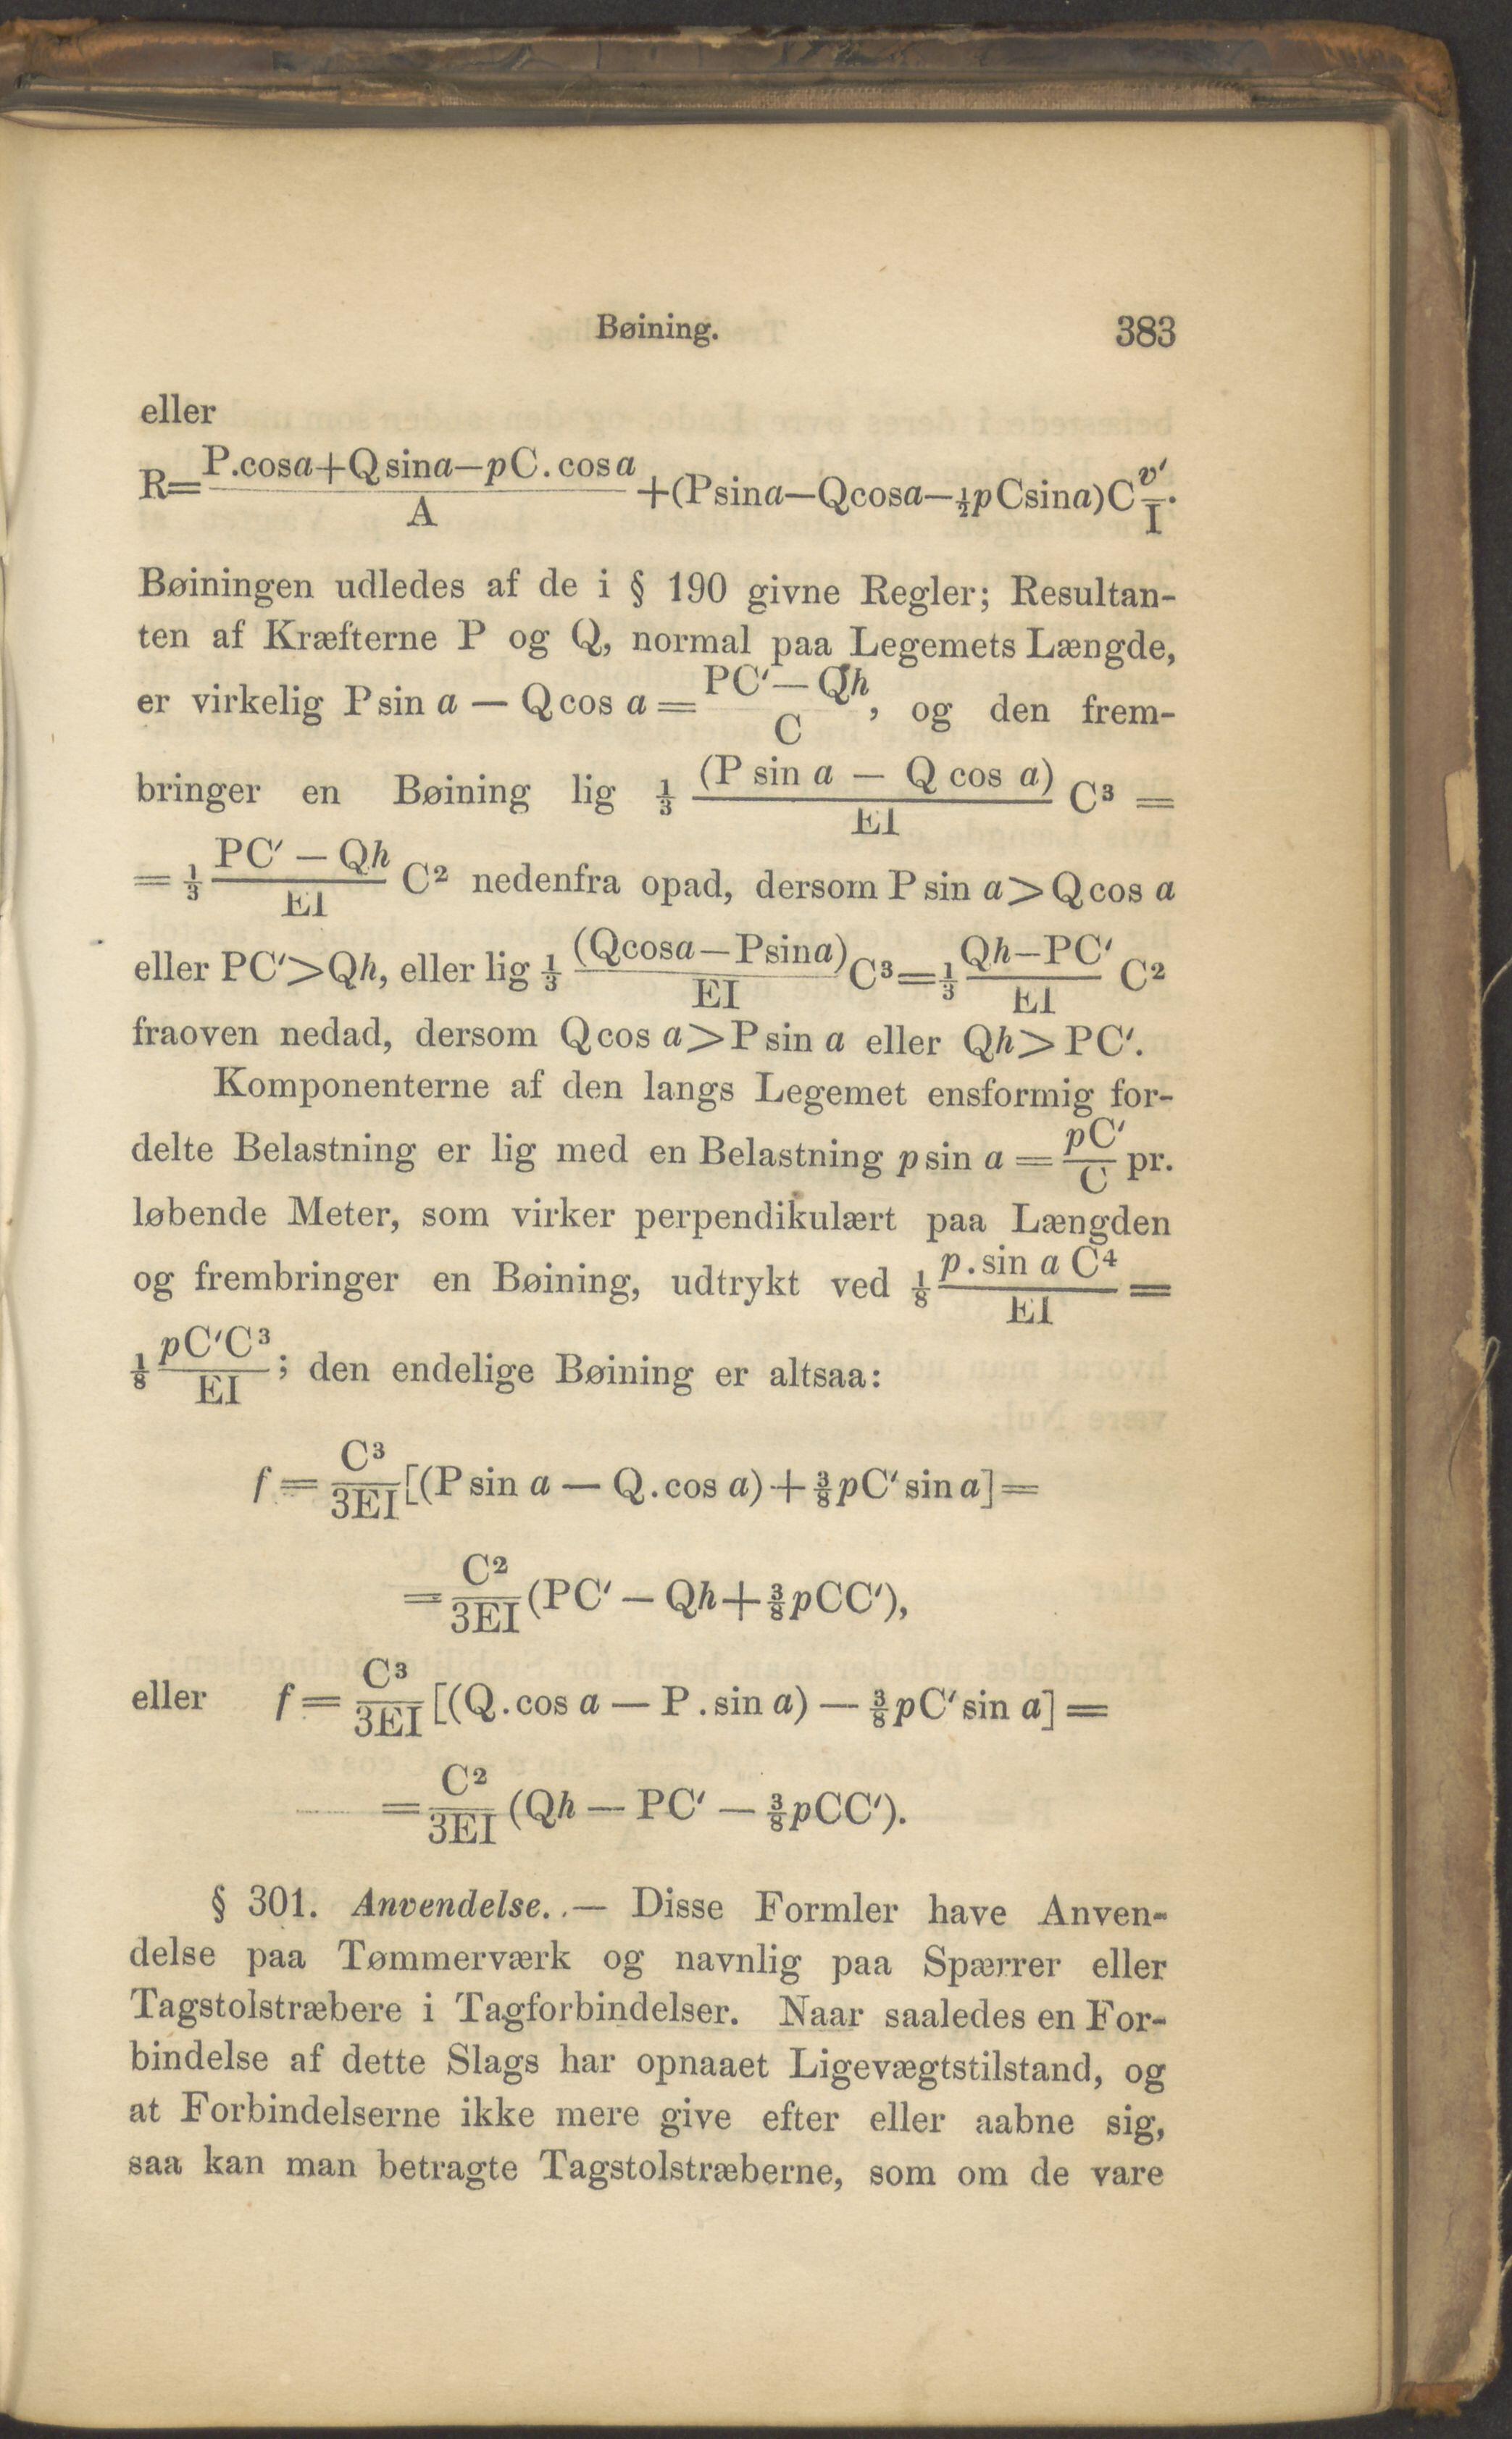 Bøining. 383
eller
R=\frac{P.cosa+Qsina—pC.cosa}{A}+(Psina—Qcosa—½pCsina)C\frac{v′}{I}.
Bøiningen udledes af de i § 190 givne Regler; Resultan-
ten af Kræfterne P og Q, normal paa Legemets Længde,
er virkelig P sin a — Q cos a = \frac{PC′— Qh}{C}, og den frem-
bringer en Bøining lig ⅓ \frac{(P sin a — Q cos a)}{EI} C³ =
= ⅓ \frac{PC′ — Qh}{EI} C² nedenfra opad, dersom P sin a > Q cos a
eller PC′>Qh, eller lig ⅓ \frac{(Qcosa—Psina)}{EI}C³=⅓\frac{Qh—PC′}{EI} C²
fraoven nedad, dersom Q cos a > P sin a eller Qh > PC′.
Komponenterne af den langs Legemet ensformig for-
delte Belastning er lig med en Belastning p sin a = \frac{pC′}{C} pr.
løbende Meter, som virker perpendikulært paa Længden
og frembringer en Bøining, udtrykt ved ⅛ \frac{p.sin a C⁴}{EI} =
⅛ \frac{pC′C³}{EI}; den endelige Bøining er altsaa:
f = \frac{C³}{3EI}[(P sin a — Q.cos a) + ⅜ pC′ sin a] =
= \frac{C²}{3EI}(PC′ — Qh + ⅜ pCC′),
eller f = \frac{C³}{3EI}[(Q.cos a — P.sin a) — ⅜ pC′ sin a] =
= \frac{C²}{3EI}(Qh — PC′ — ⅜ pCC′).
§ 301. Anvendelse. — Disse Formler have Anven-
delse paa Tømmerværk og navnlig paa Spærrer eller
Tagstolstræbere i Tagforbindelser. Naar saaledes en For-
bindelse af dette Slags har opnaaet Ligevægtstilstand, og
at Forbindelserne ikke mere give efter eller aabne sig,
saa kan man betragte Tagstolstræberne, som om de vare